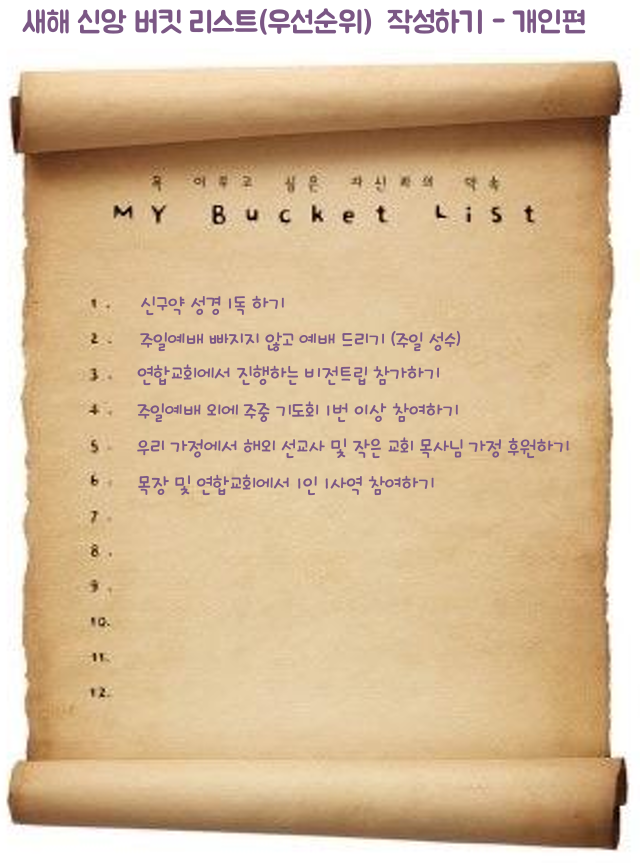 새해 신앙 버킷 리스트(우선순위) 작성하기 - 개인편
꼭 이루고 싶은 자신과의 약속
MY Bucket List
1. 신구약 성경 1독 하기
2. 주일예배 빠지지 않고 예배 드리기 (주일 성수)
3. 연합교회에서 진행하는 비전트립 참가하기
4. 주일예배 외에 주중 기도회 1번 이상 참여하기
5. 우리 가정에서 해외 선교사 및 작은 교회 목사님 가정 후원하기
6. 목장 및 연합교회에서 1인 1사역 참여하기
7.
8.
9.
10.
11.
12.